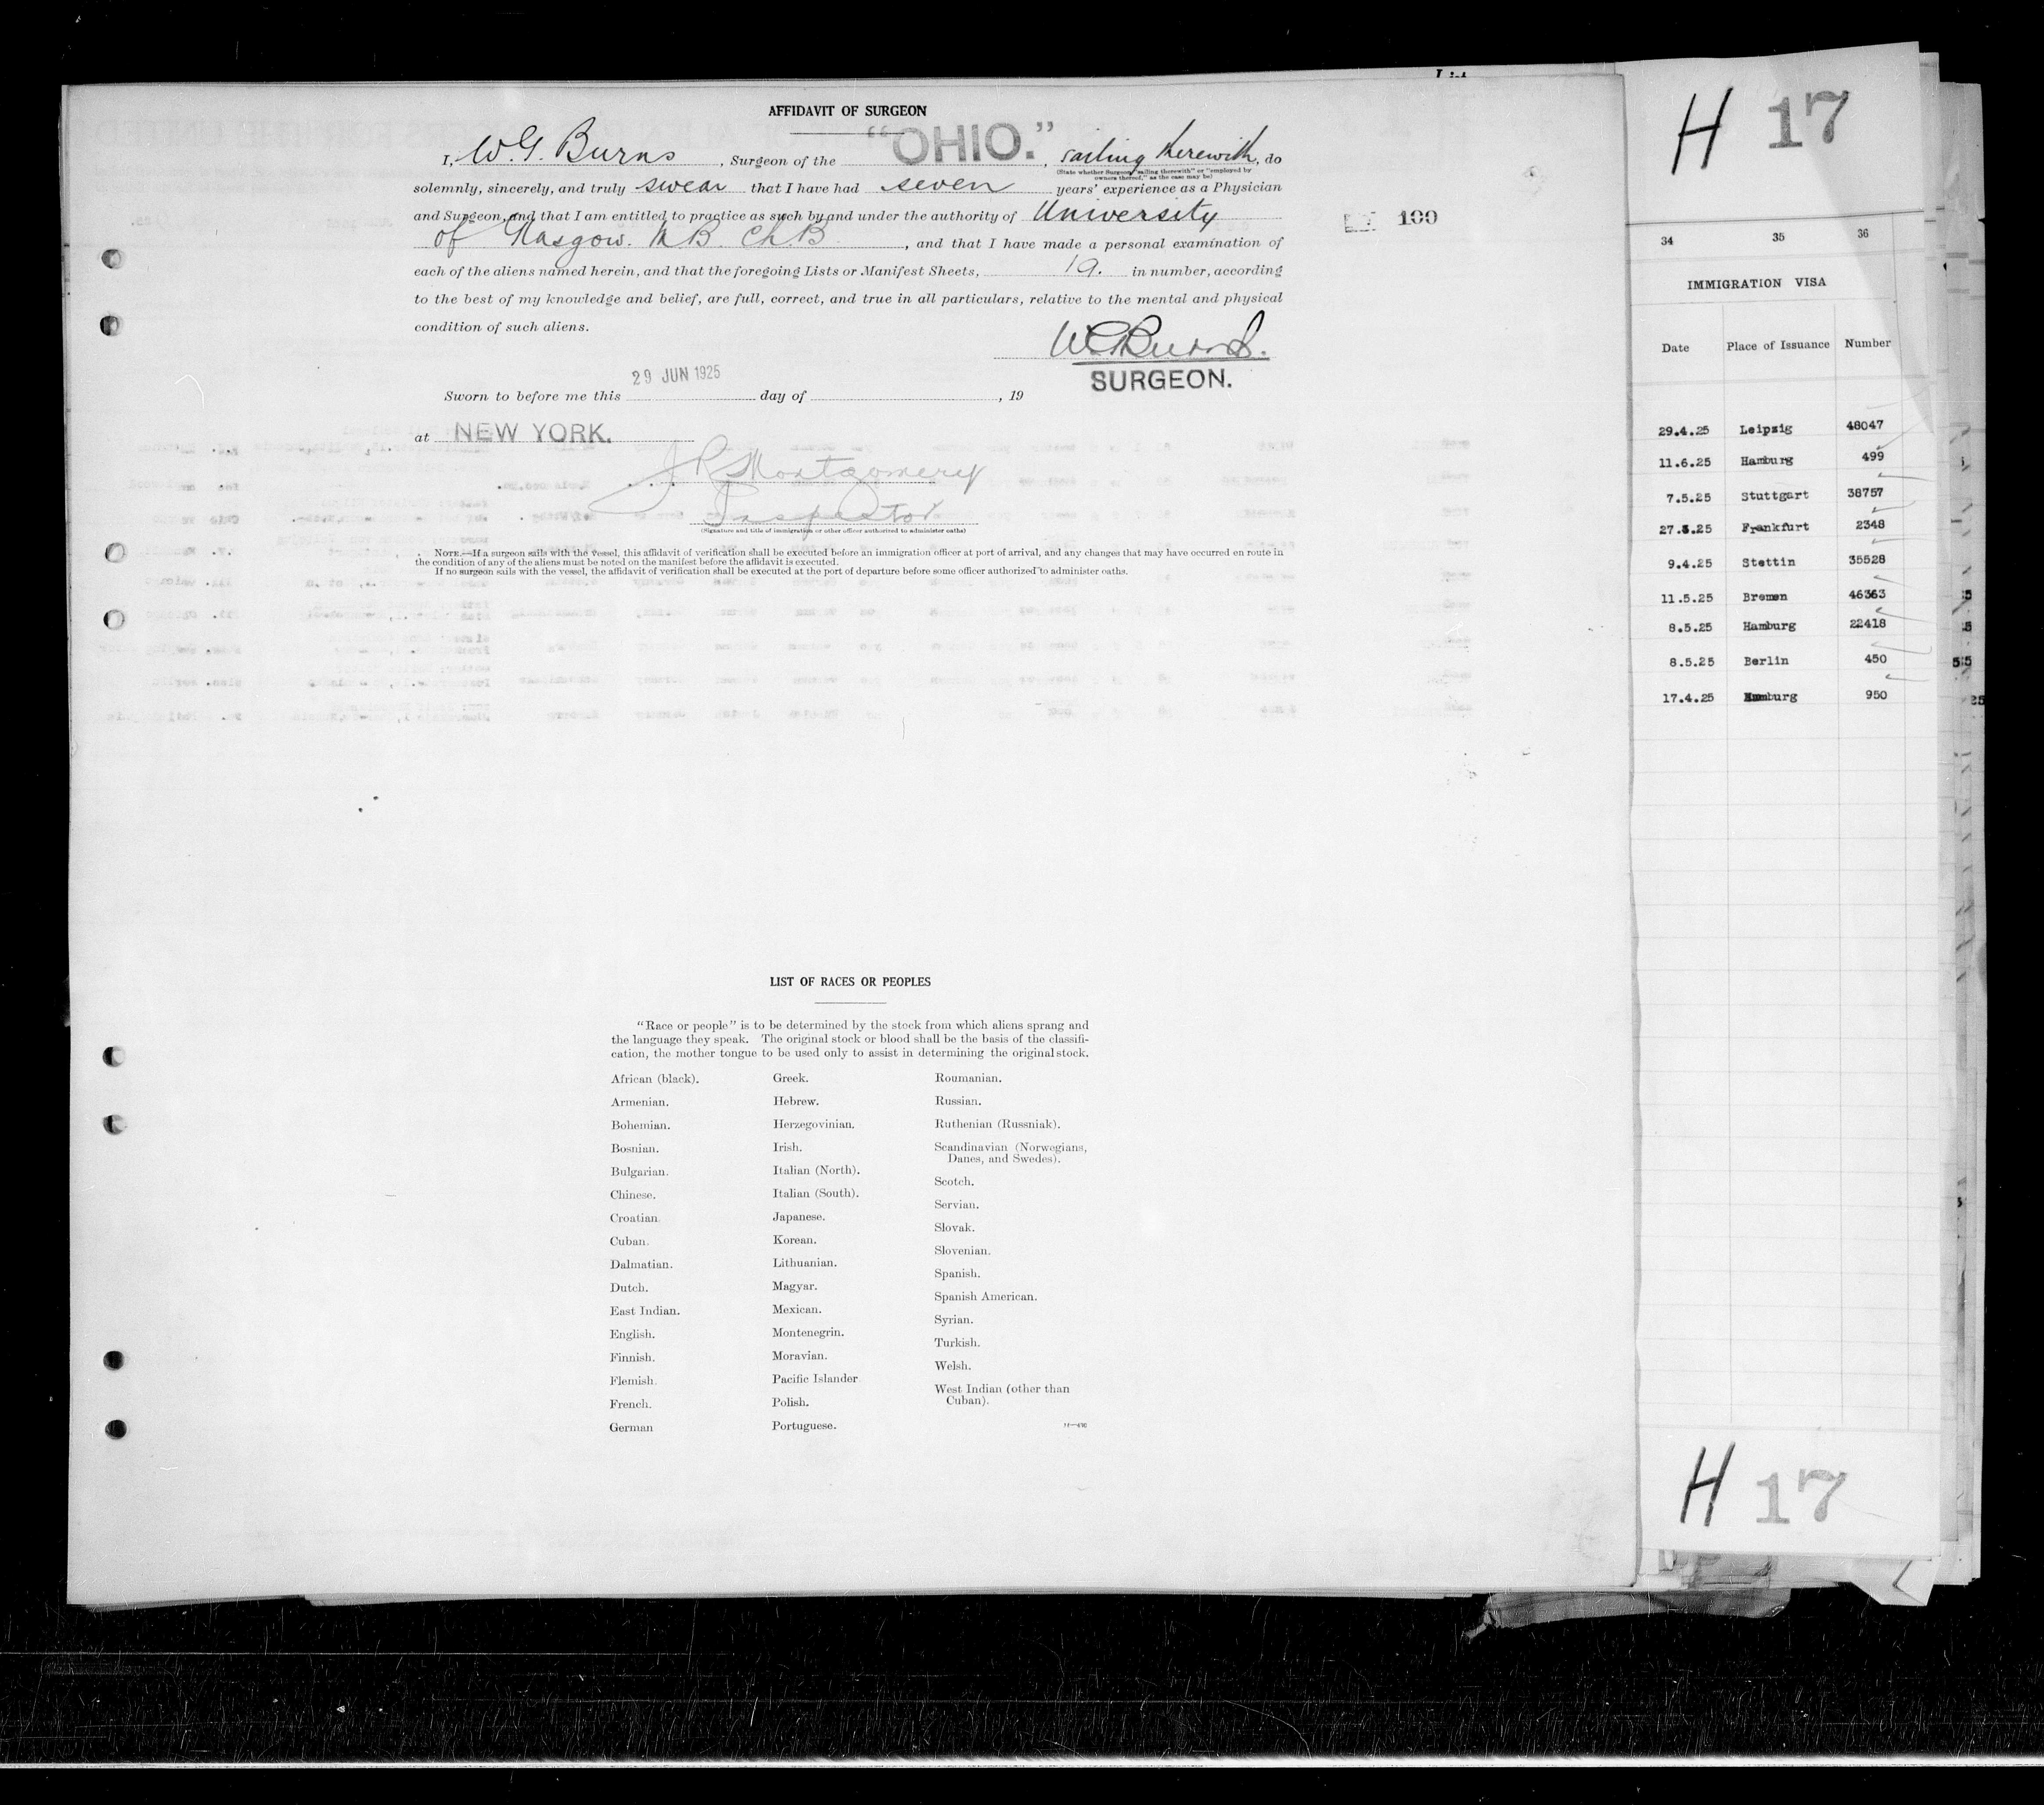 AFFIDAVIT OF SURGEON
I, W. G. Burns, Surgeon of the "OHIO.", sailing therewith, do
(State whether Surgeon "sailing therewith" or "employed by
owners thereof," as the case may be)
solemnly, sincerely, and truly swear that I have had seven years' experience as a Physician
and Surgeon, and that I am entitled to practice as such by and under the authority of University
of Glasgow. M.B. Ch.B, and that I have made a personal examination of
each of the aliens named herein, and that the foregoing Lists or Manifest Sheets, 19. in number, according
to the best of my knowledge and belief, are full, correct, and true in all particulars, relative to the mental and physical
condition of such aliens.
W G Burns.
SURGEON.
Sworn to before me this 29 JUN 1925 day of , 19
at NEW YORK.
J R Montgomery
Inspector
(Signature and title of immigration or other officer authorized to administer oaths)
NOTE.—If a surgeon sails with the vessel, this affidavit of verification shall be executed before an immigration officer at port of arrival, and any changes that may have occurred en route in
the condition of any of the aliens must be noted on the manifest before the affidavit is executed.
If no surgeon sails with the vessel, the affidavit of verification shall be executed at the port of departure before some officer authorized to administer oaths.
100
LIST OF RACES OR PEOPLES
"Race or people" is to be determined by the stock from which aliens sprang and
the language they speak. The original stock or blood shall be the basis of the classifi-
cation, the mother tongue to be used only to assist in determining the original stock.
African (black).
Armenian.
Bohemian.
Bosnian.
Bulgarian.
Chinese.
Croatian.
Cuban.
Dalmatian.
Dutch.
East Indian.
English.
Finnish.
Flemish.
French.
German
Greek.
Hebrew.
Herzegovinian.
Irish.
Italian (North).
Italian (South).
Japanese.
Korean.
Lithuanian.
Magyar.
Mexican.
Montenegrin.
Moravian.
Pacific Islander.
Polish.
Portuguese.
Roumanian.
Russian.
Ruthenian (Russniak).
Scandinavian (Norwegians,
Danes, and Swedes).
Scotch.
Servian.
Slovak.
Slovenian.
Spanish.
Spanish American.
Syrian.
Turkish.
Welsh.
West Indian (other than
Cuban).
H 17
34 35 36
IMMIGRATION VISA
Date Place of Issuance Number
29.4.25 Leipzig 48047
11.6.25 Hamburg 499
7.5.25 Stuttgart 38757
27.3.25 Frankfurt 2348
9.4.25 Stettin 35528
11.5.25 Bremen 46363
8.5.25 Hamburg 22418
8.5.25 Berlin 450
17.4.25 Hamburg 950
H 17